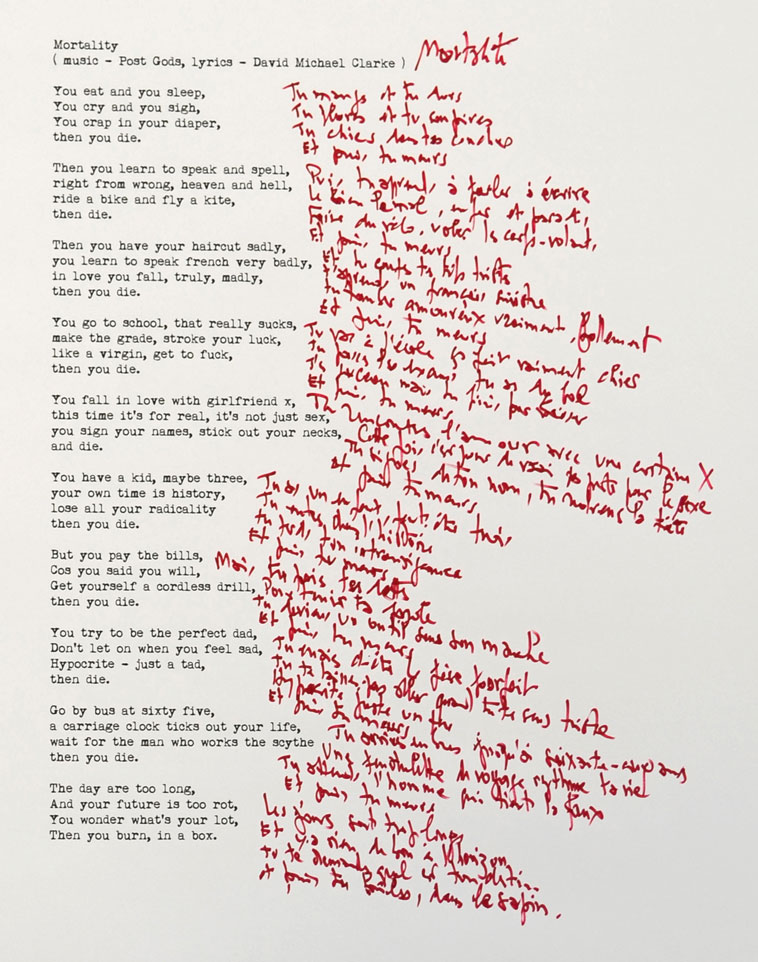 Mortality
( music - Post Gods, lyrics - David Michael Clarke )
Mortalité
You eat and you sleep,
You cry and you sigh,
You crap in your diaper,
then you die.
Then you learn to speak and spell,
right from wrong, heaven and hell,
ride a bike and fly a kite,
then die.
Then you have your haircut sadly,
you learn to speak french very badly,
in love you fall, truly, madly,
then you die.
You go to school, that really sucks,
make the grade, stroke your luck,
like a virgin, get to fuck,
then you die.
You fall in love with girlfriend x,
this time it's for real, it's not just sex,
you sign your names, stick out your necks,
and die.
You have a kid, maybe three,
your own time is history,
lose all your radicality
then you die.
But you pay the bills,
Cos you said you will,
Get yourself a cordless drill,
then you die.
You try to be the perfect dad,
Don't let on when you feel sad,
Hypocrite - just a tad,
then die.
Go by bus at sixty five,
a carriage clock ticks out your life,
wait for the man who works the scythe
then you die.
The day are too long,
And your future is too rot,
You wonder what's your lot,
Then you burn, in a box.
Tu manges et tu dors
Tu pleures et tu soupires
Tu chies dans tes couches
Et puis, tu meurs
Puis, tu apprends à parler à écrire
Le bien le mal, enfer et paradis,
Faire du vélo, voler les cerfs-volant,
Et puis, tu meurs
Et tu coupes tes triste
un français sinistre
tu tombes amoureux vraiment, follement
Et puis, tu meurs
Tu vas à l'école ça fait vraiment chier
Tu passes l'examen, tu as du bol
mais tu finis par baiser
Et puis, tu meurs
Tu rencontres l'amour avec une certaine X
Cette fois c'est pour de vrai pas juste pour le sexe
Tu signes de ton nom, tu la tête
et puis tu meurs
Tu as un enfant, peut être trois,
l'histoire
tu perds ton intransigeance
Et puis, tu meurs
Mais, tu paies tes
Pour tenir ta parole
tu un outil sans son manche
Et puis, tu meurs
Tu essaies d'être père parfait
Tu te laisse pas aller quand tu te sens triste
Hypocrite, juste un peu
Et puis tu meurs
Tu arrives en bus jusqu'à soixante-cinq ans
Une de voyage rythme ta vie
Tu attends l'homme qui tient la faux
Et puis tu meurs
Les jours sont trop longs
Et y'a rien de bon à l'horizon
tu te demandes quel est ton destin..
et puis tu brûles, dans le sapin.